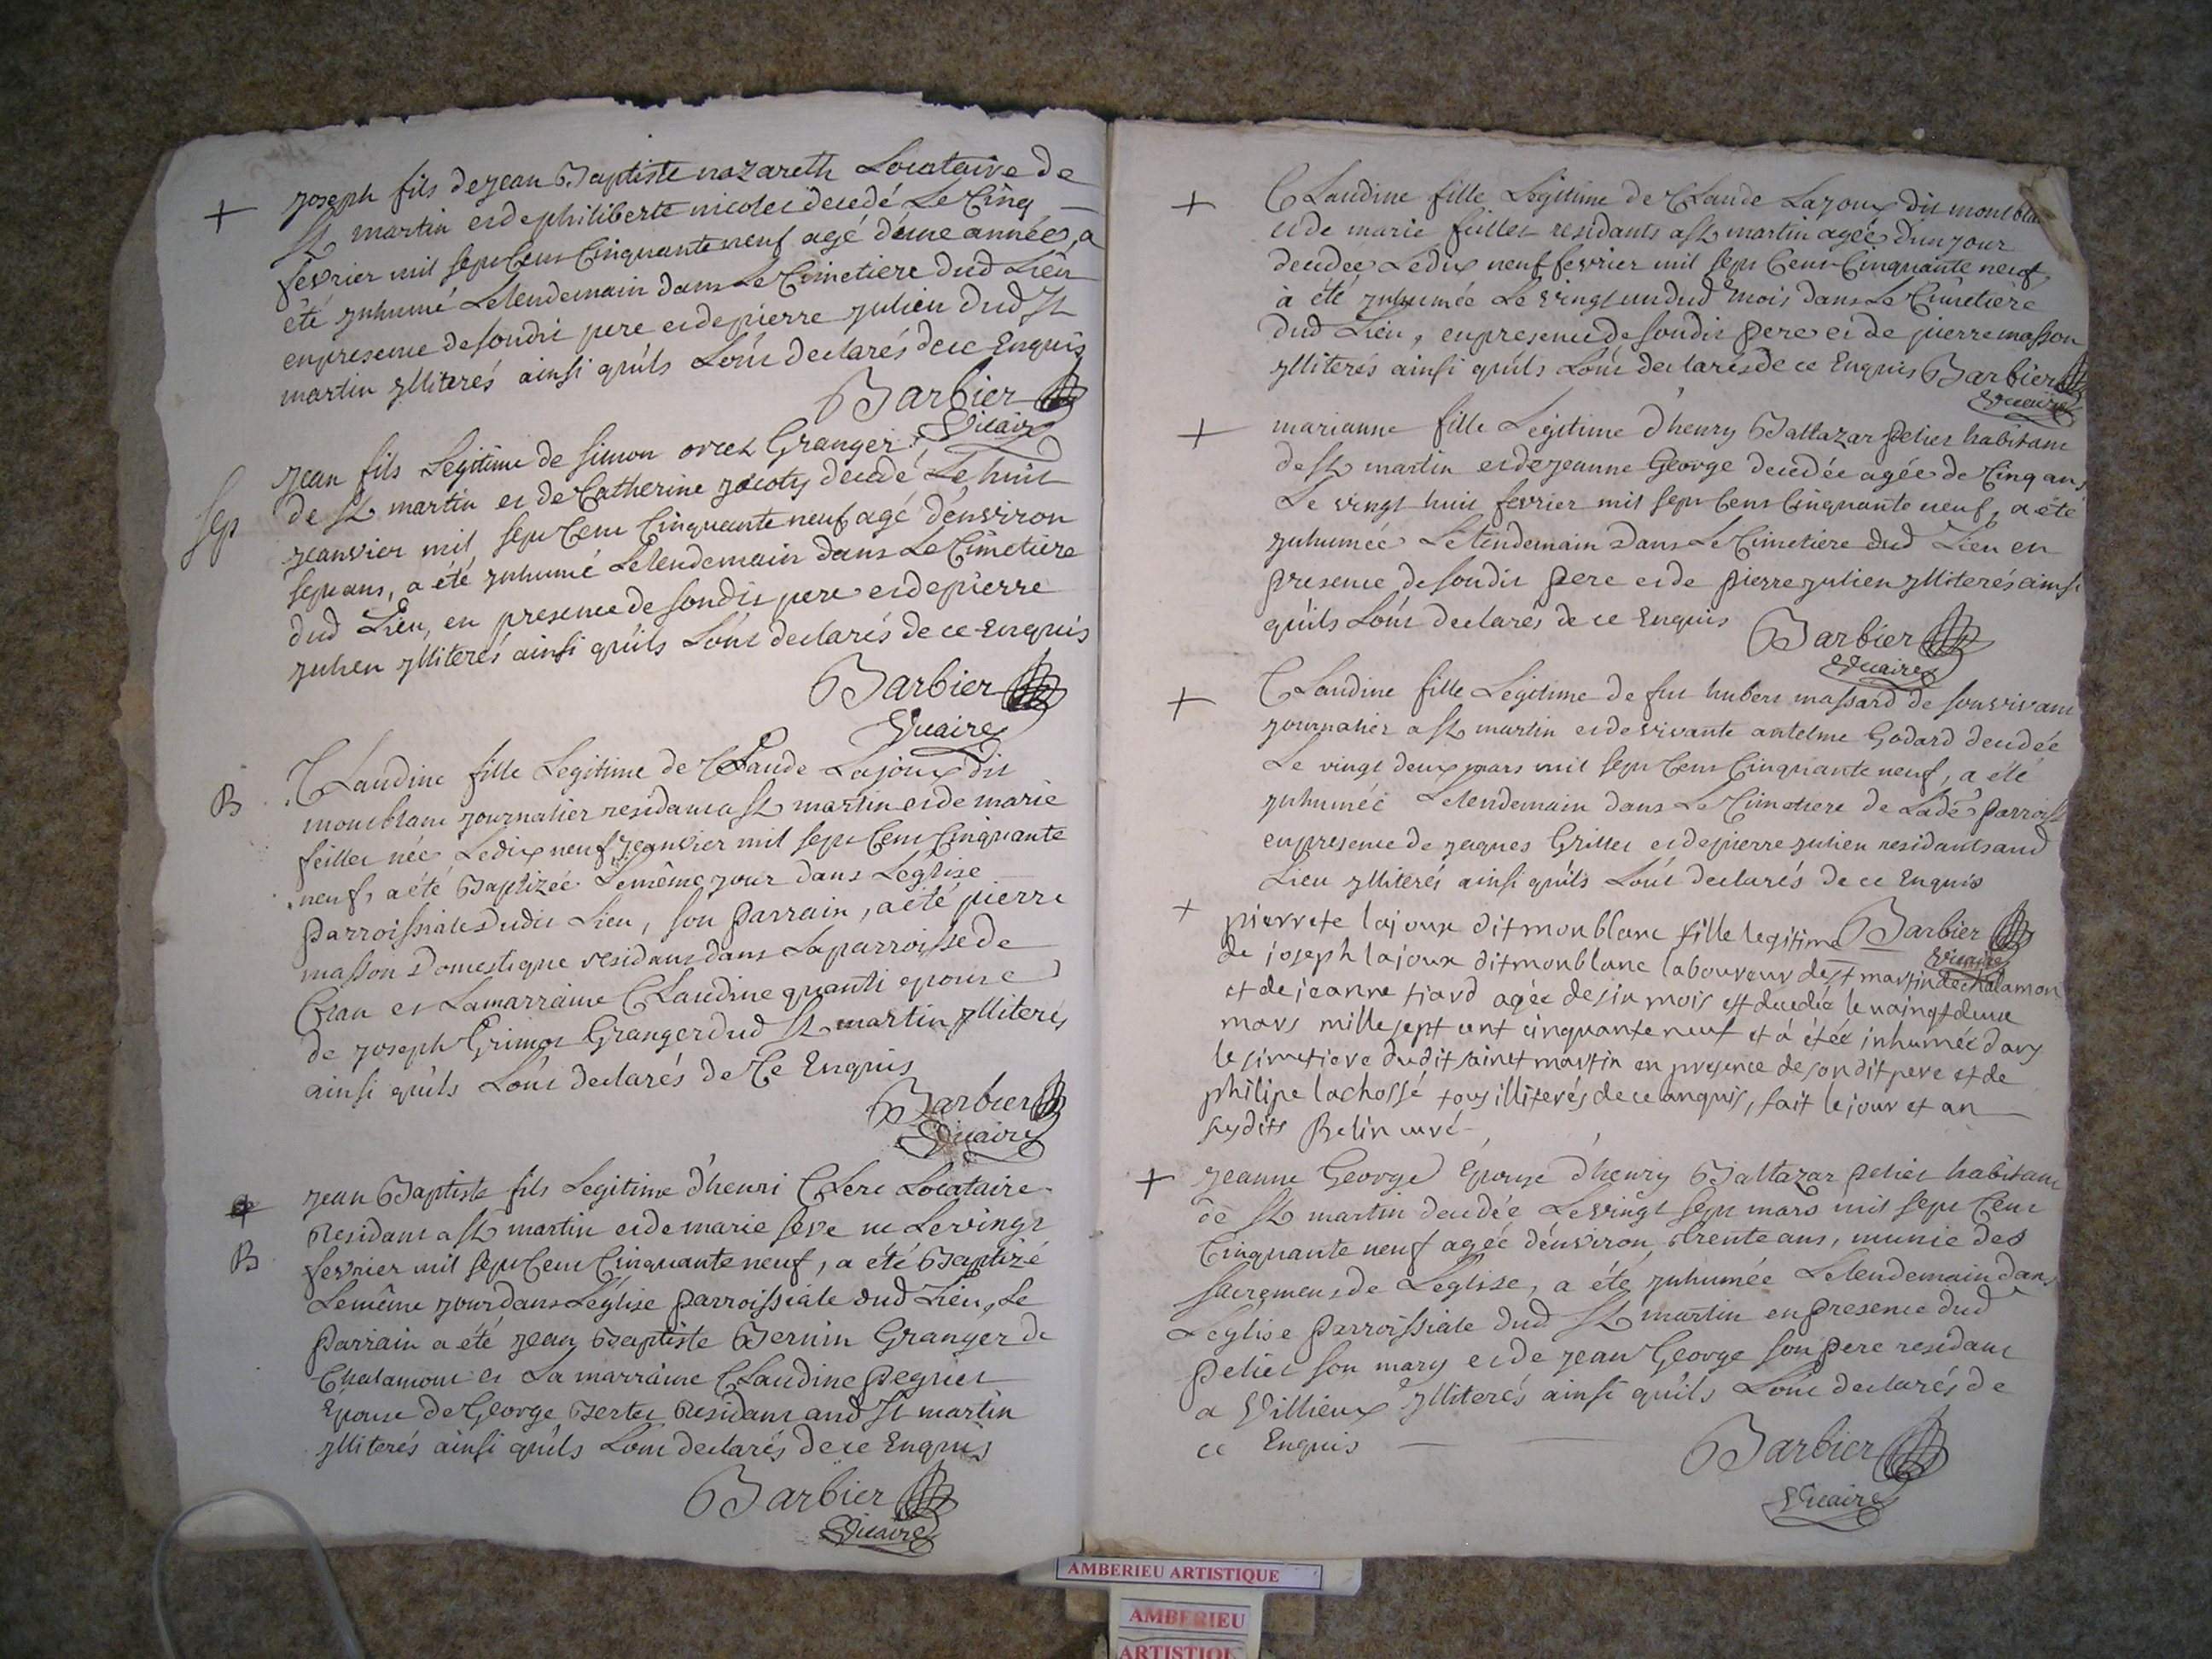 + joseph fils de jean Baptiste nazareth Locataire de
St martin et de philiberte nicolet decedé Le Cinq
fevrier mil sept Cent Cinquante neuf agé d'une année, a
été jnhumé Le lendemain dans Le Cimetiere dud Lieu
en presence de sondit pere et de pierre julien dud St
martin jlliterés ainsi qu'ils L'ont declarés de ce Enquis
Barbier
Vicaire
Sep
jean fils Legitime de simon Granger
de St martin et de Catherine decedé Le huit
jeanvier mil sept Cent Cinquante neuf agé d'environ
sept ans, a été jnhumé Le lendemain dans Le Cimetiere
dud Lieu, en presence de sondit pere et de pierre
julien jlliterés ainsi qu'ils L'ont declarés de ce Enquis
Barbier
Vicaire
B
Claudine fille Legitime de Claude Lajoux dit
montblanc journalier residant a St martin et de marie
feillet née Le dix neuf jeanvier mil sept Cent Cinquante
neuf, a été Baptizée Le même jour dans L'eglise
parroissiale dudit Lieu, son parrain, a été pierre
masson Domestique residant dans La parroisse de
Cran et La marraine Claudine quanti epouse
de joseph Granger dud St martin jlliterés
ainsi qu'ils L'ont declarés de Ce Enquis
Barbier
Vicaire
+
B
jean Baptiste fils Legitime d'henri Clerc Locataire
Residant a St martin et de marie seve ne Le vingt
fevrier mil sept Cent Cinquante neuf, a été Baptizé
Le même jour dans L'eglise parroissiale dud Lieu, Le
parrain a été jean Baptiste Bernin Granger de
Chalamont et La marraine Claudine
Epouse de George Bertet Residant aud St martin
jlliterés ainsi qu'ils L'ont declarés de ce Enquis
Barbier
Vicaire
+ Claudine fille Legitime de Claude Lajoux dit montblanc
et de marie feillet residants a St martin agée d'un jour
decedée Le dix neuf fevrier mil sept Cent Cinquante neuf,
à été jnhumée Le vingt un dud mois dans Le Cimetiere
dud Lieu, en presence de sondit pere et de pierre masson
jlliterés ainsi qu'ils L'ont declarés de ce Enquis Barbier
Vicaire
+ marianne fille Legitime d'henry Baltazar petiet habitant
de St martin et de jeanne George decedée agée de Cinq ans
Le vingt huit fevrier mil sept Cent Cinquante neuf, a été
jnhumée Le lendemain Dans Le Cimetiere dud Lieu en
presence de sondit pere et de pierre julien jlliterés ainsi
qu'ils L'ont declarés de ce Enquis
Barbier
Vicaire
+ Claudine fille Legitime de feu hubert massard de son vivant
journalier a St martin et de vivante antelme Godard decedée
Le vingt deux mars mil sept Cent Cinquante neuf, a été
jnhumée Le lendemain dans Le Cimetiere de Ladé parroisse
en presence de jaques Grillet et de pierre julien residants aud
Lieu jlliterés ainsi qu'ils L'ont declarés de ce Enquis
Barbier
Vicaire
+ pierrete lajoux dit monblanc fille legitime
de joseph lajoux dit monblanc laboureur de st martin de chalamon
et de jeanne tiard agée de six mois est decedée le vaingt deux
mars mille sept cent cinquante neuf et à étée inhumée dans
le simetiere dudit sainct martin en presence de son dit pere et de
philipe lachossé tous illiterés de ce anquis, fait le jour et an
susdits Belin curé
+ jeanne George Epouse d'henry Baltazar petiet habitant
de St martin decedée Le vingt sept mars mil sept Cent
Cinquante neuf agée d'environ trente ans, munie des
sacremens de L'eglise, a été jnhumée Le lendemain dans
L'eglise parroissiale dud St martin en presence dud
petiet son mary et de jean George son pere residant
a Villieux jlliterés ainsi qu'ils L'ont declarés de
ce Enquis
Barbier
Vicaire
AMBERIEU ARTISTIQUE
AMBERIEU
ARTISTIQU